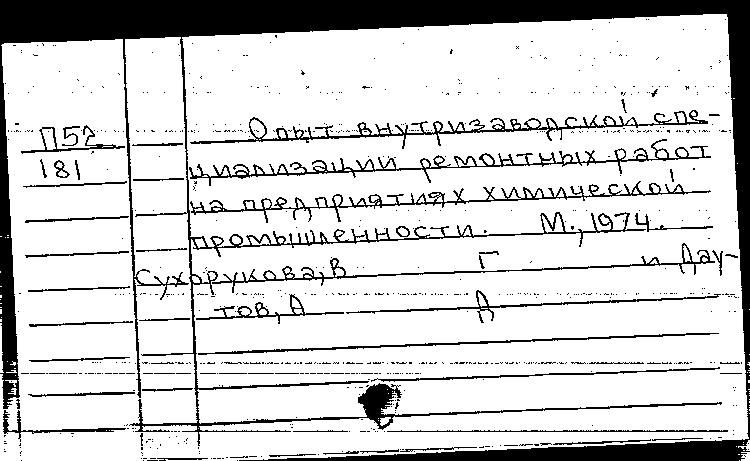 П52 Опыт внутризаводской спе-
181 циализации ремонтных работ
на предприятиях химической
промышленности. М., 1974.
Сухорукова, В Г и Дау-
тов, А А